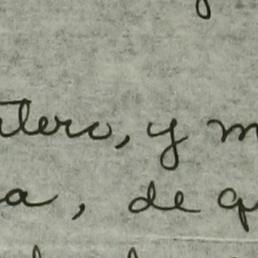 tero, y m
a, de q